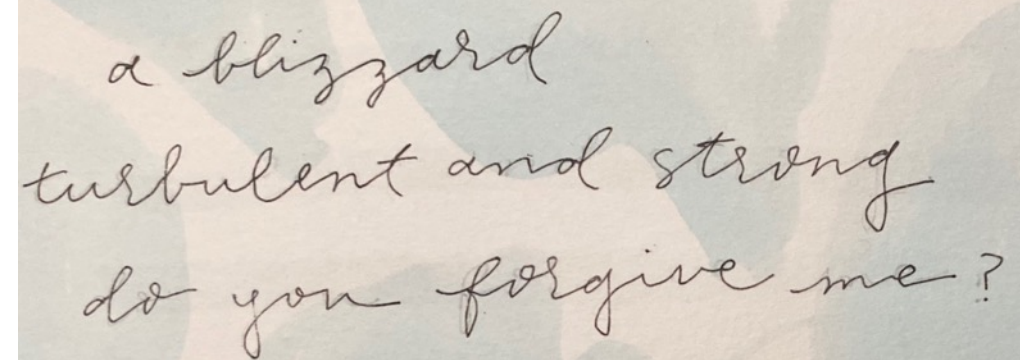 a blizzard
turbulent and strong
do you forgive me?